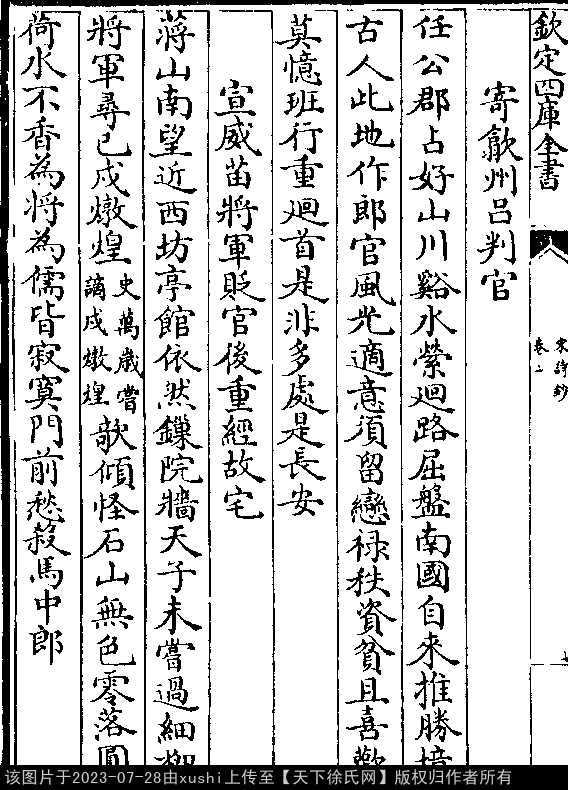 欽定四庫全書
宋詩鈔
卷上
寄歙州呂判官
任公郡占好山川谿水縈廻路屈盤南國自來推勝境
古人此地作郎官風光適意須留戀祿秩資貧且喜歡
莫憶班行重廻首是非多處是長安
宣威苗將軍貶官後重經故宅
蔣山南望近西坊亭館依然鏁院牆天子未嘗過細柳
將軍尋已戍燉煌史萬歲嘗謫戍燉煌欹傾怪石山無色零落圓
荷水不香為將為儒皆寂寞門前愁殺馬中郎
该图片于2023-07-28由xushi上传至【天下徐氏网】版权归作者所有